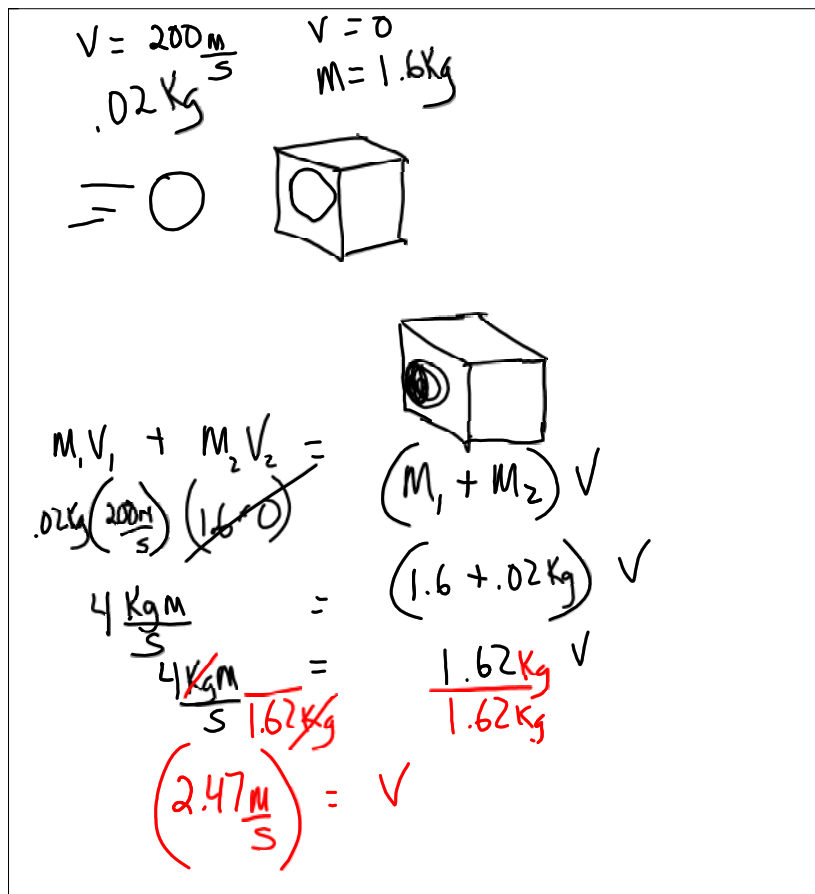 V = 200 m/s V = 0
.02 Kg m = 1.6 Kg
M₁V₁ + M₂V₂ = (M₁ + M₂) V
.02Kg (200m/s) (1.6 · 0)
4 Kgm/s = (1.6 + .02Kg) V
4 Kgm/s 1/1.62Kg = 1.62Kg/1.62Kg V
(2.47 m/s) = V